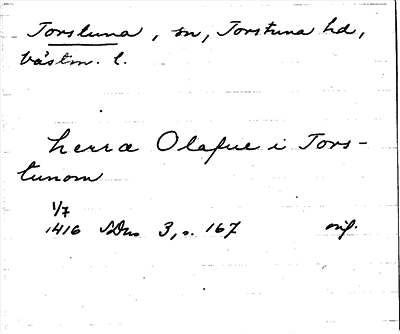 Torstuna, sn, Torstuna hd,
Västm. l.
herra Olafue i Tors-
tunom
1/7
1416 SDns 3, s. 167 orig.